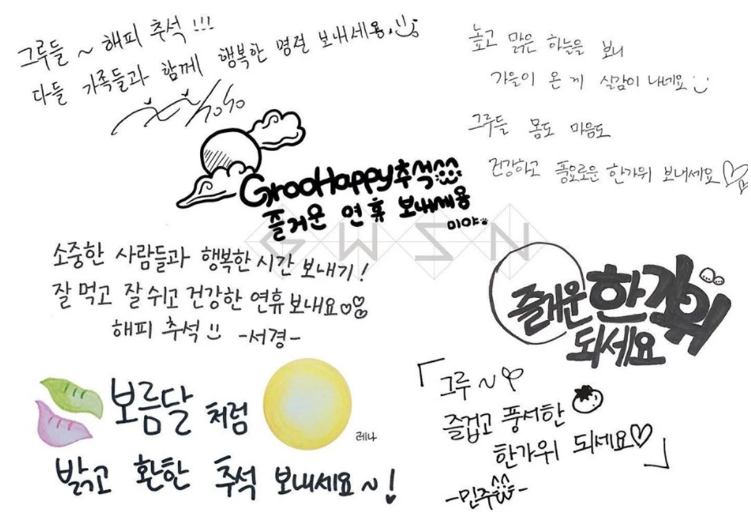 그루들 ~ 해피 추석 !!!
다들 가족들과 함께 행복한 명절 보내세용
soso
높고 맑은 하늘을 보니
가을이 온 게 실감이 나네요
그루들 몸도 마음도
건강하고 풍요로운 한가위 보내세요♡
GrooHappy추석
즐거운 연휴 보내세용
미야
GWSN
소중한 사람들과 행복한 시간 보내기!
잘 먹고 잘 쉬고 건강한 연휴 보내요♡
해피 추석 -서경-
즐거운 한가위
되세요
「그루~♡
즐겁고 풍서한
한가위 되세요♡」
-민주-
보름달 처럼
레나
밝고 환한 추석 보내세요~!